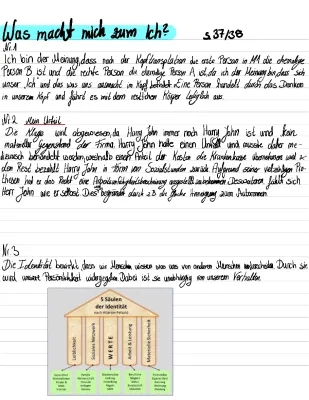 Was macht mich zum Ich? S 37/38
Nr.1
Ich bin der Meinung, dass nach der Kopftransplantation die erste Person in M1 die ehemalige
Person B ist und die rechte Person die ehemalige Person A ist, da ich der Meinung bin, dass sich
unser Ich und das was uns ausmacht im Kopf befindet. Eine Person handelt durch das Denken
in unserem Kopf und führt es mit dem restlichen Körper lediglich aus.
Nr.2 Mein Urteil
Die Klage wird abgewiesen, da Harry John immer noch Harry John ist und kein
materieller Gegenstand der Firma. Harry John hatte einen Unfall und musste daher me-
dizinisch behandelt werden, weshalb einen Anteil der Kosten die Krankenkasse übernehmen und
den Rest bezahlt Harry John in Form von Sozialstunden zurück. Aufgrund seiner vielzähligen Pro-
thesen hat er das Recht eine Arbeitsunfähigkeitsbescheinigung zu bekommen. Desweiteren fühlt sich
Herr John wie er selbst. Dies begründet durch z.B. die Neigung zum Autorennen.
Nr.3
Die Identität bewirkt, dass wir Menschen wissen was uns von anderen Menschen unterscheidet. Durch sie
wird unsere Persönlichkeit widergegeben. Dabei ist sie unabhängig von unserem Verhalten.
5 Säulen
der Identität
Leiblichkeit
Soziales Netzwerk
WERTE
Arbeit & Leistung
Materielle Sicherheit